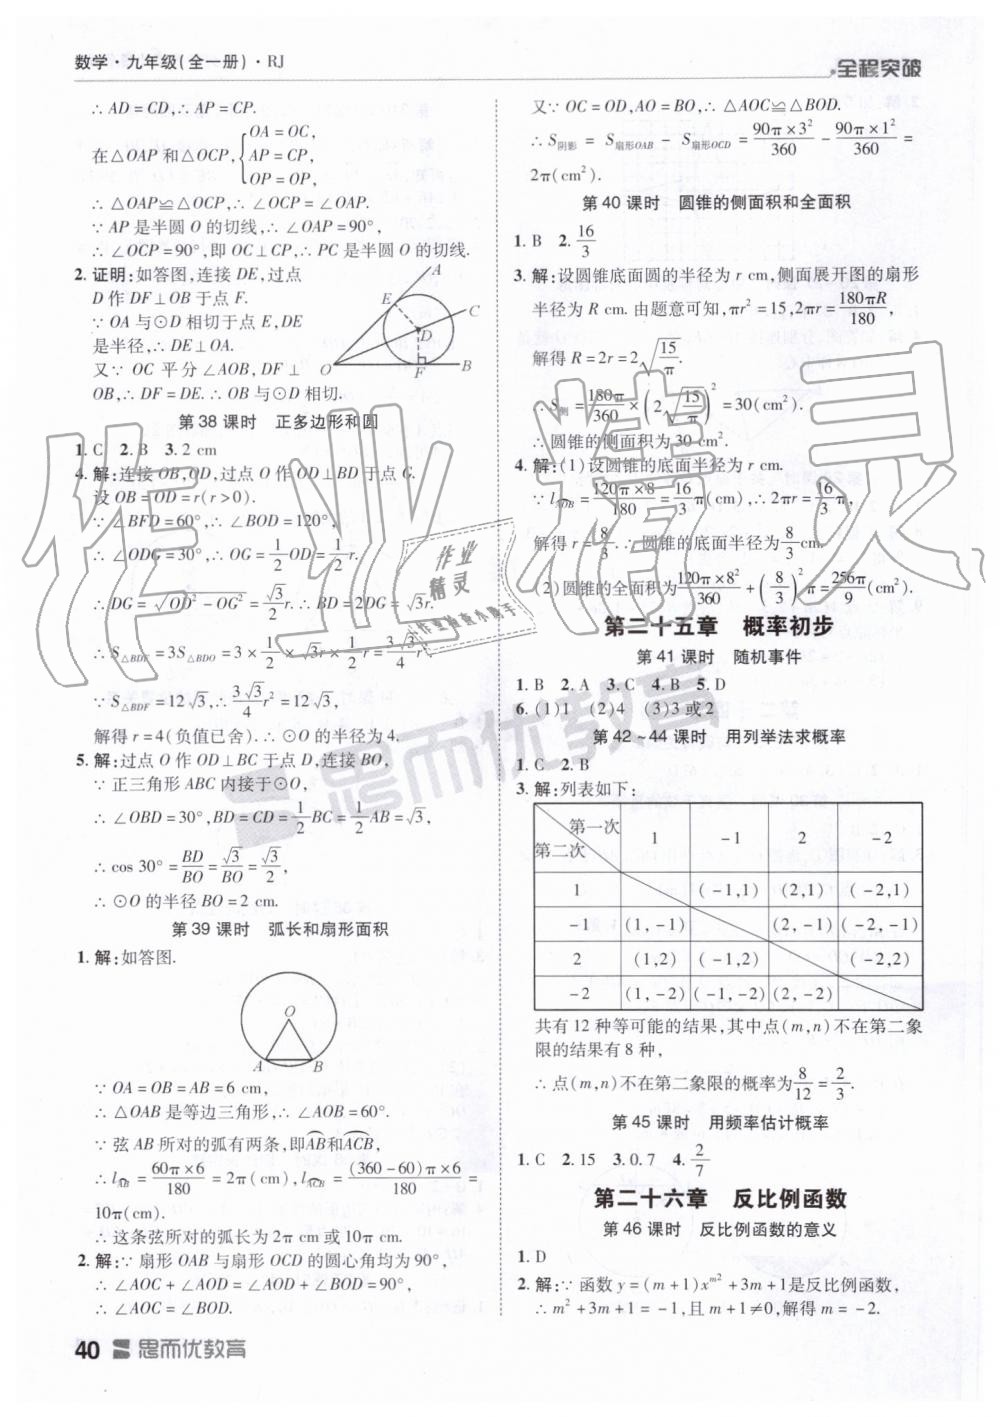 数学·九年级(全一册)·RJ
全程突破
∴ AD=CD,∴ AP=CP.
在△OAP 和△OCP, { OA=OC, AP=CP, OP=OP,
∴ △OAP≌△OCP,∴ ∠OCP=∠OAP.
∵ AP 是半圆 O 的切线,∴ ∠OAP=90°,
∴ ∠OCP=90°,即 OC⊥CP,∴ PC 是半圆 O 的切线.
2. 证明:如答图,连接 DE,过点
D 作 DF⊥OB 于点 F.
∵ OA 与⊙D 相切于点 E,DE
是半径,∴ DE⊥OA.
又∵ OC 平分∠AOB,DF⊥
OB,∴ DF=DE.∴ OB 与⊙D 相切.
A
E
C
D
O
F
B
第 38 课时 正多边形和圆
1. C 2. B 3. 2 cm
4. 解:连接 OB,OD,过点 O 作 OD⊥BD 于点 G.
设 OB=OD=r(r>0).
∵ ∠BFD=60°,∴ ∠BOD=120°,
∴ ∠ODG=30°,∴ OG=1/2 OD=1/2 r.
∴ DG=√(OD²-OG²)=√3/2 r.∴ BD=2DG=√3 r.
∴ S△BDF=3S△BDO=3×1/2×√3 r×1/2 r=3√3/4 r².
∵ S△BDF=12√3,∴ 3√3/4 r²=12√3,
解得 r=4(负值已舍).∴ ⊙O 的半径为 4.
5. 解:过点 O 作 OD⊥BC 于点 D,连接 BO,
∵ 正三角形 ABC 内接于⊙O,
∴ ∠OBD=30°,BD=CD=1/2 BC=1/2 AB=√3,
∴ cos 30°=BD/BO=√3/BO=√3/2,
∴ ⊙O 的半径 BO=2 cm.
第 39 课时 弧长和扇形面积
1. 解:如答图.
O
A
B
∵ OA=OB=AB=6 cm,
∴ △OAB 是等边三角形,∴ ∠AOB=60°.
∵ 弦 AB 所对的弧有两条,即AB和ACB,
∴ l AB=60π×6/180=2π(cm),l ACB=(360-60)π×6/180=
10π(cm).
∴ 这条弦所对的弧长为 2π cm 或 10π cm.
2. 解:∵ 扇形 OAB 与扇形 OCD 的圆心角均为 90°,
∴ ∠AOC+∠AOD=∠AOD+∠BOD=90°,
∴ ∠AOC=∠BOD.
40 思而优教育
又∵ OC=OD,AO=BO,∴ △AOC≌△BOD.
∴ S阴影=S扇形OAB-S扇形OCD=90π×3²/360-90π×1²/360=
2π(cm²).
第 40 课时 圆锥的侧面积和全面积
1. B 2. 16/3
3. 解:设圆锥底面圆的半径为 r cm,侧面展开图的扇形
半径为 R cm. 由题意可知,πr²=15,2πr=180πR/180,
解得 R=2r=2√(15/π).
∴ S侧=180π/360×(2√(15/π))²=30(cm²).
∴ 圆锥的侧面积为 30 cm².
4. 解:(1)设圆锥的底面半径为 r cm.
∵ l AOB=120π×8/180=16/3 π(cm),∴ 2πr=16/3 π,
解得 r=8/3.∴ 圆锥的底面半径为 8/3 cm.
(2)圆锥的全面积为120π×8²/360+(8/3)²π=256π/9(cm²).
第二十五章 概率初步
第 41 课时 随机事件
1. B 2. A 3. C 4. B 5. D
6. (1)1 (2)4 (3)3 或 2
第 42~44 课时 用列举法求概率
1. C 2. B
3. 解:列表如下:
第一次 第二次 1 -1 2 -2
1 (-1,1) (2,1) (-2,1)
-1 (1,-1) (2,-1) (-2,-1)
2 (1,2) (-1,2) (-2,2)
-2 (1,-2) (-1,-2) (2,-2)
共有 12 种等可能的结果,其中点(m,n)不在第二象
限的结果有 8 种,
∴ 点(m,n)不在第二象限的概率为 8/12=2/3.
第 45 课时 用频率估计概率
1. C 2. 15 3. 0.7 4. 2/7
第二十六章 反比例函数
第 46 课时 反比例函数的意义
1. D
2. 解:∵ 函数 y=(m+1)x^(m²+3m+1)是反比例函数,
∴ m²+3m+1=-1,且 m+1≠0,解得 m=-2.
作业精灵
思而优教育
作业
精灵